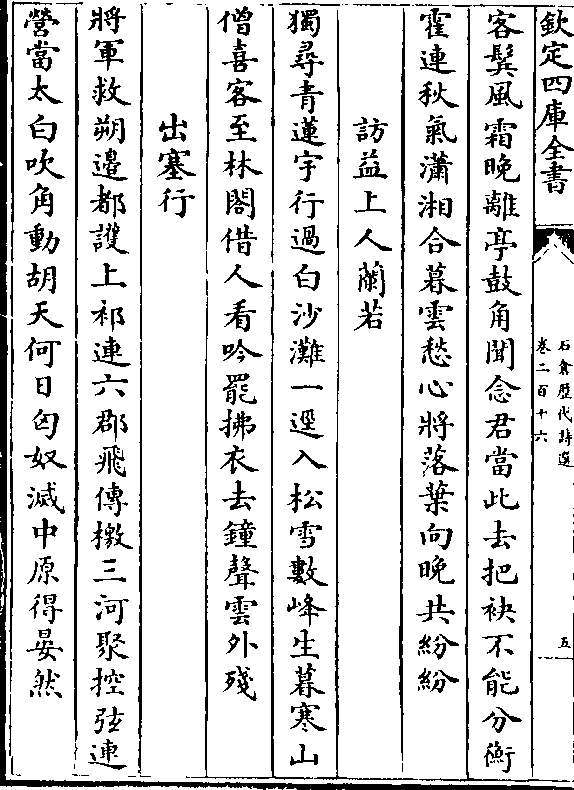 欽定四庫全書
石倉歷代詩選
卷二百十六
五
客鬂風霜晚離亭鼓角聞念君當此去把袂不能分衡
霍連秋氣瀟湘合暮雲愁心將落葉向晚共紛紛
訪益上人蘭若
獨尋青蓮宇行過白沙灘一逕入松雪數峰生暮寒山
僧喜客至林閣借人看吟罷拂衣去鐘聲雲外殘
出塞行
將軍救朔邊都護上祁連六郡飛傳檄三河聚控弦連
營當太白吹角動胡天何日匈奴滅中原得晏然